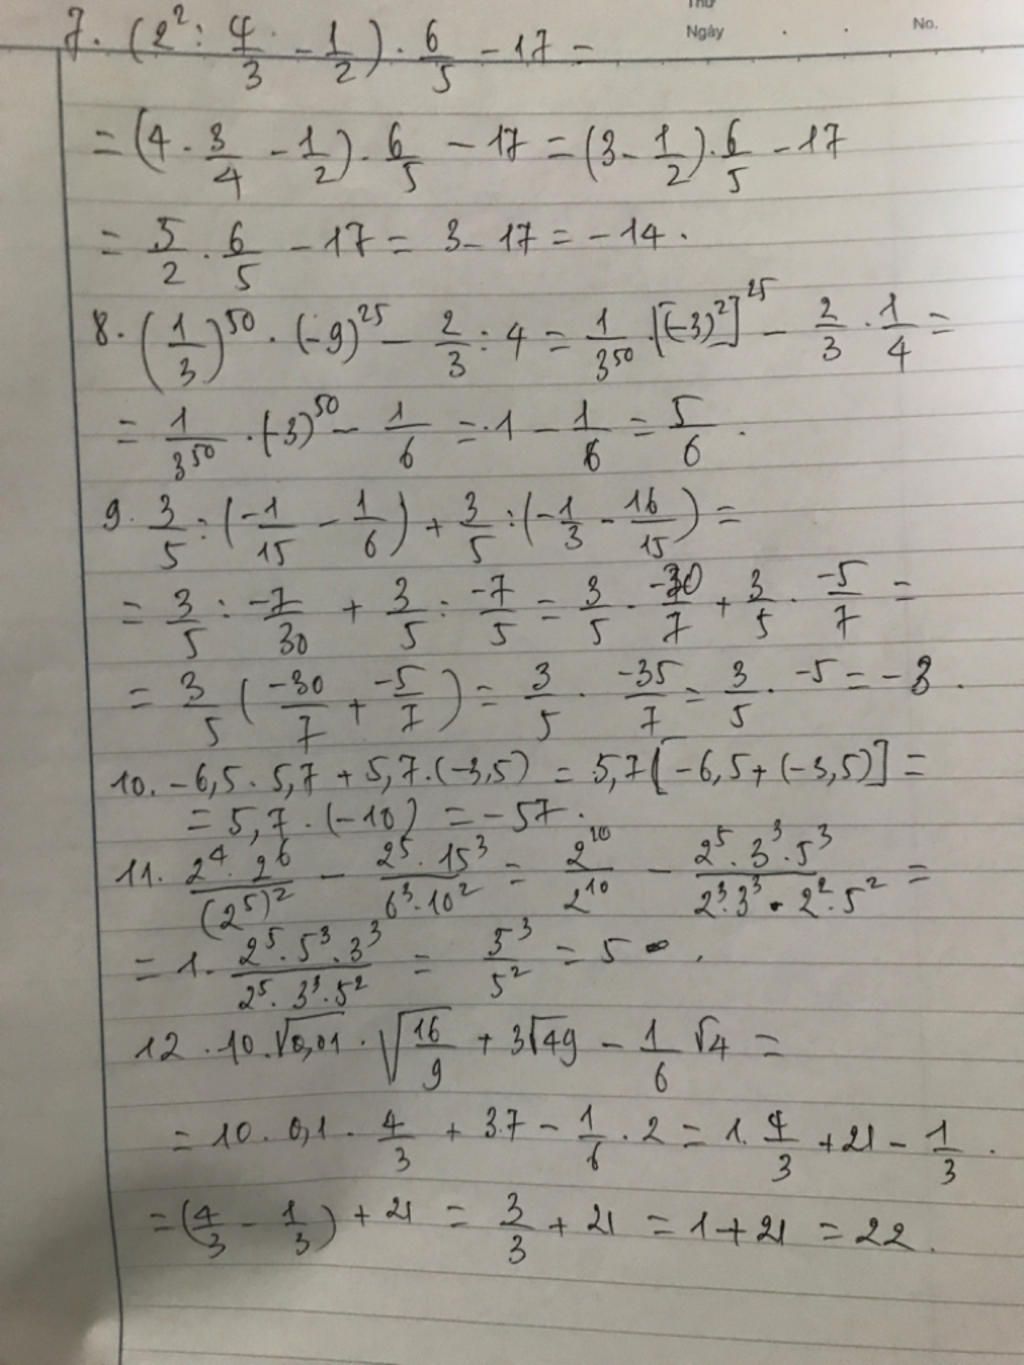 Thứ
Ngày . . No.
7. (2² : 4/3 - 1/2) . 6/5 - 17 =
= (4 . 3/4 - 1/2) . 6/5 - 17 = (3 - 1/2) . 6/5 - 17
= 5/2 . 6/5 - 17 = 3 - 17 = -14 .
8. (1/3)⁵⁰ . (-9)²⁵ - 2/3 : 4 = 1/3⁵⁰ . [(-3)²]²⁵ - 2/3 . 1/4 =
= 1/3⁵⁰ . (-3)⁵⁰ - 1/6 = 1 - 1/6 = 5/6 .
9. 3/5 : (-1/15 - 1/6) + 3/5 : (-1/3 - 16/15) =
= 3/5 : -7/30 + 3/5 : -7/5 = 3/5 . -30/7 + 3/5 . -5/7 =
= 3/5 (-30/7 + -5/7) = 3/5 . -35/7 = 3/5 . -5 = -3 .
10. -6,5 . 5,7 + 5,7 . (-3,5) = 5,7 [-6,5 + (-3,5)] =
= 5,7 . (-10) = -57 .
11. 2⁴ . 2⁶/(2⁵)² - 2⁵ . 15³/6³ . 10² = 2¹⁰/2¹⁰ - 2⁵ . 3³ . 5³/2³ . 3³ . 2² . 5² =
= 1 . 2⁵ . 5³ . 3³/2⁵ . 3³ . 5² = 5³/5² = 5 .
12 . 10 . √0,01 . √16/9 + 3√49 - 1/6 √4 =
= 10 . 0,1 . 4/3 + 3.7 - 1/6 . 2 = 1 . 4/3 + 21 - 1/3 .
= (4/3 - 1/3) + 21 = 3/3 + 21 = 1 + 21 = 22 .